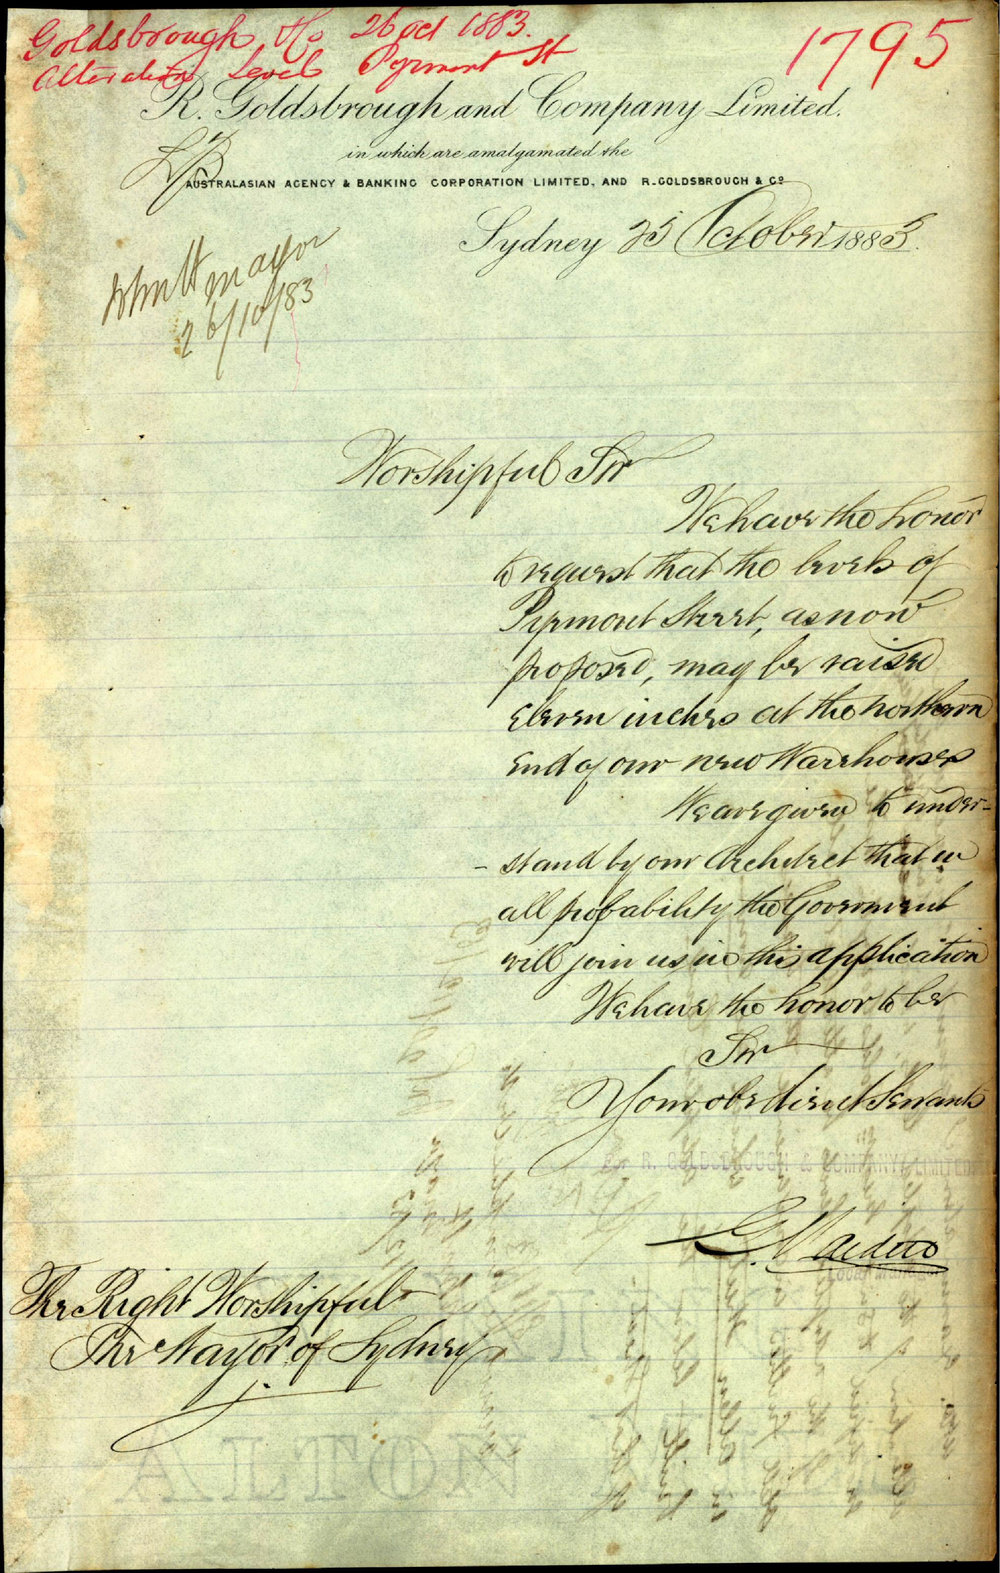 Goldsbrough & Co 26 Oct 1883.
Alteration Levels Pyrmont St
1795
R. Goldsbrough and Company Limited.
in which are amalgamated the
AUSTRALASIAN AGENCY & BANKING CORPORATION LIMITED, AND R. GOLDSBROUGH & Co
Sydney 25 October 1883.
Mayor
26/10/83
Worshipful Sir
We have the honor
to request that the levels of
Pyrmont Street, as now
proposed, may be raised
Eleven inches at the northern
End of our new Warehouses
We are given to under-
-stand by our Architect that in
all probability the Government
will join us in this application
We have the honor to be
Sir
Your obedient Servants
For R. GOLDSBROUGH & COMPANY, LIMITED
The Right Worshipful
The Mayor of Sydney
ALTON MILL